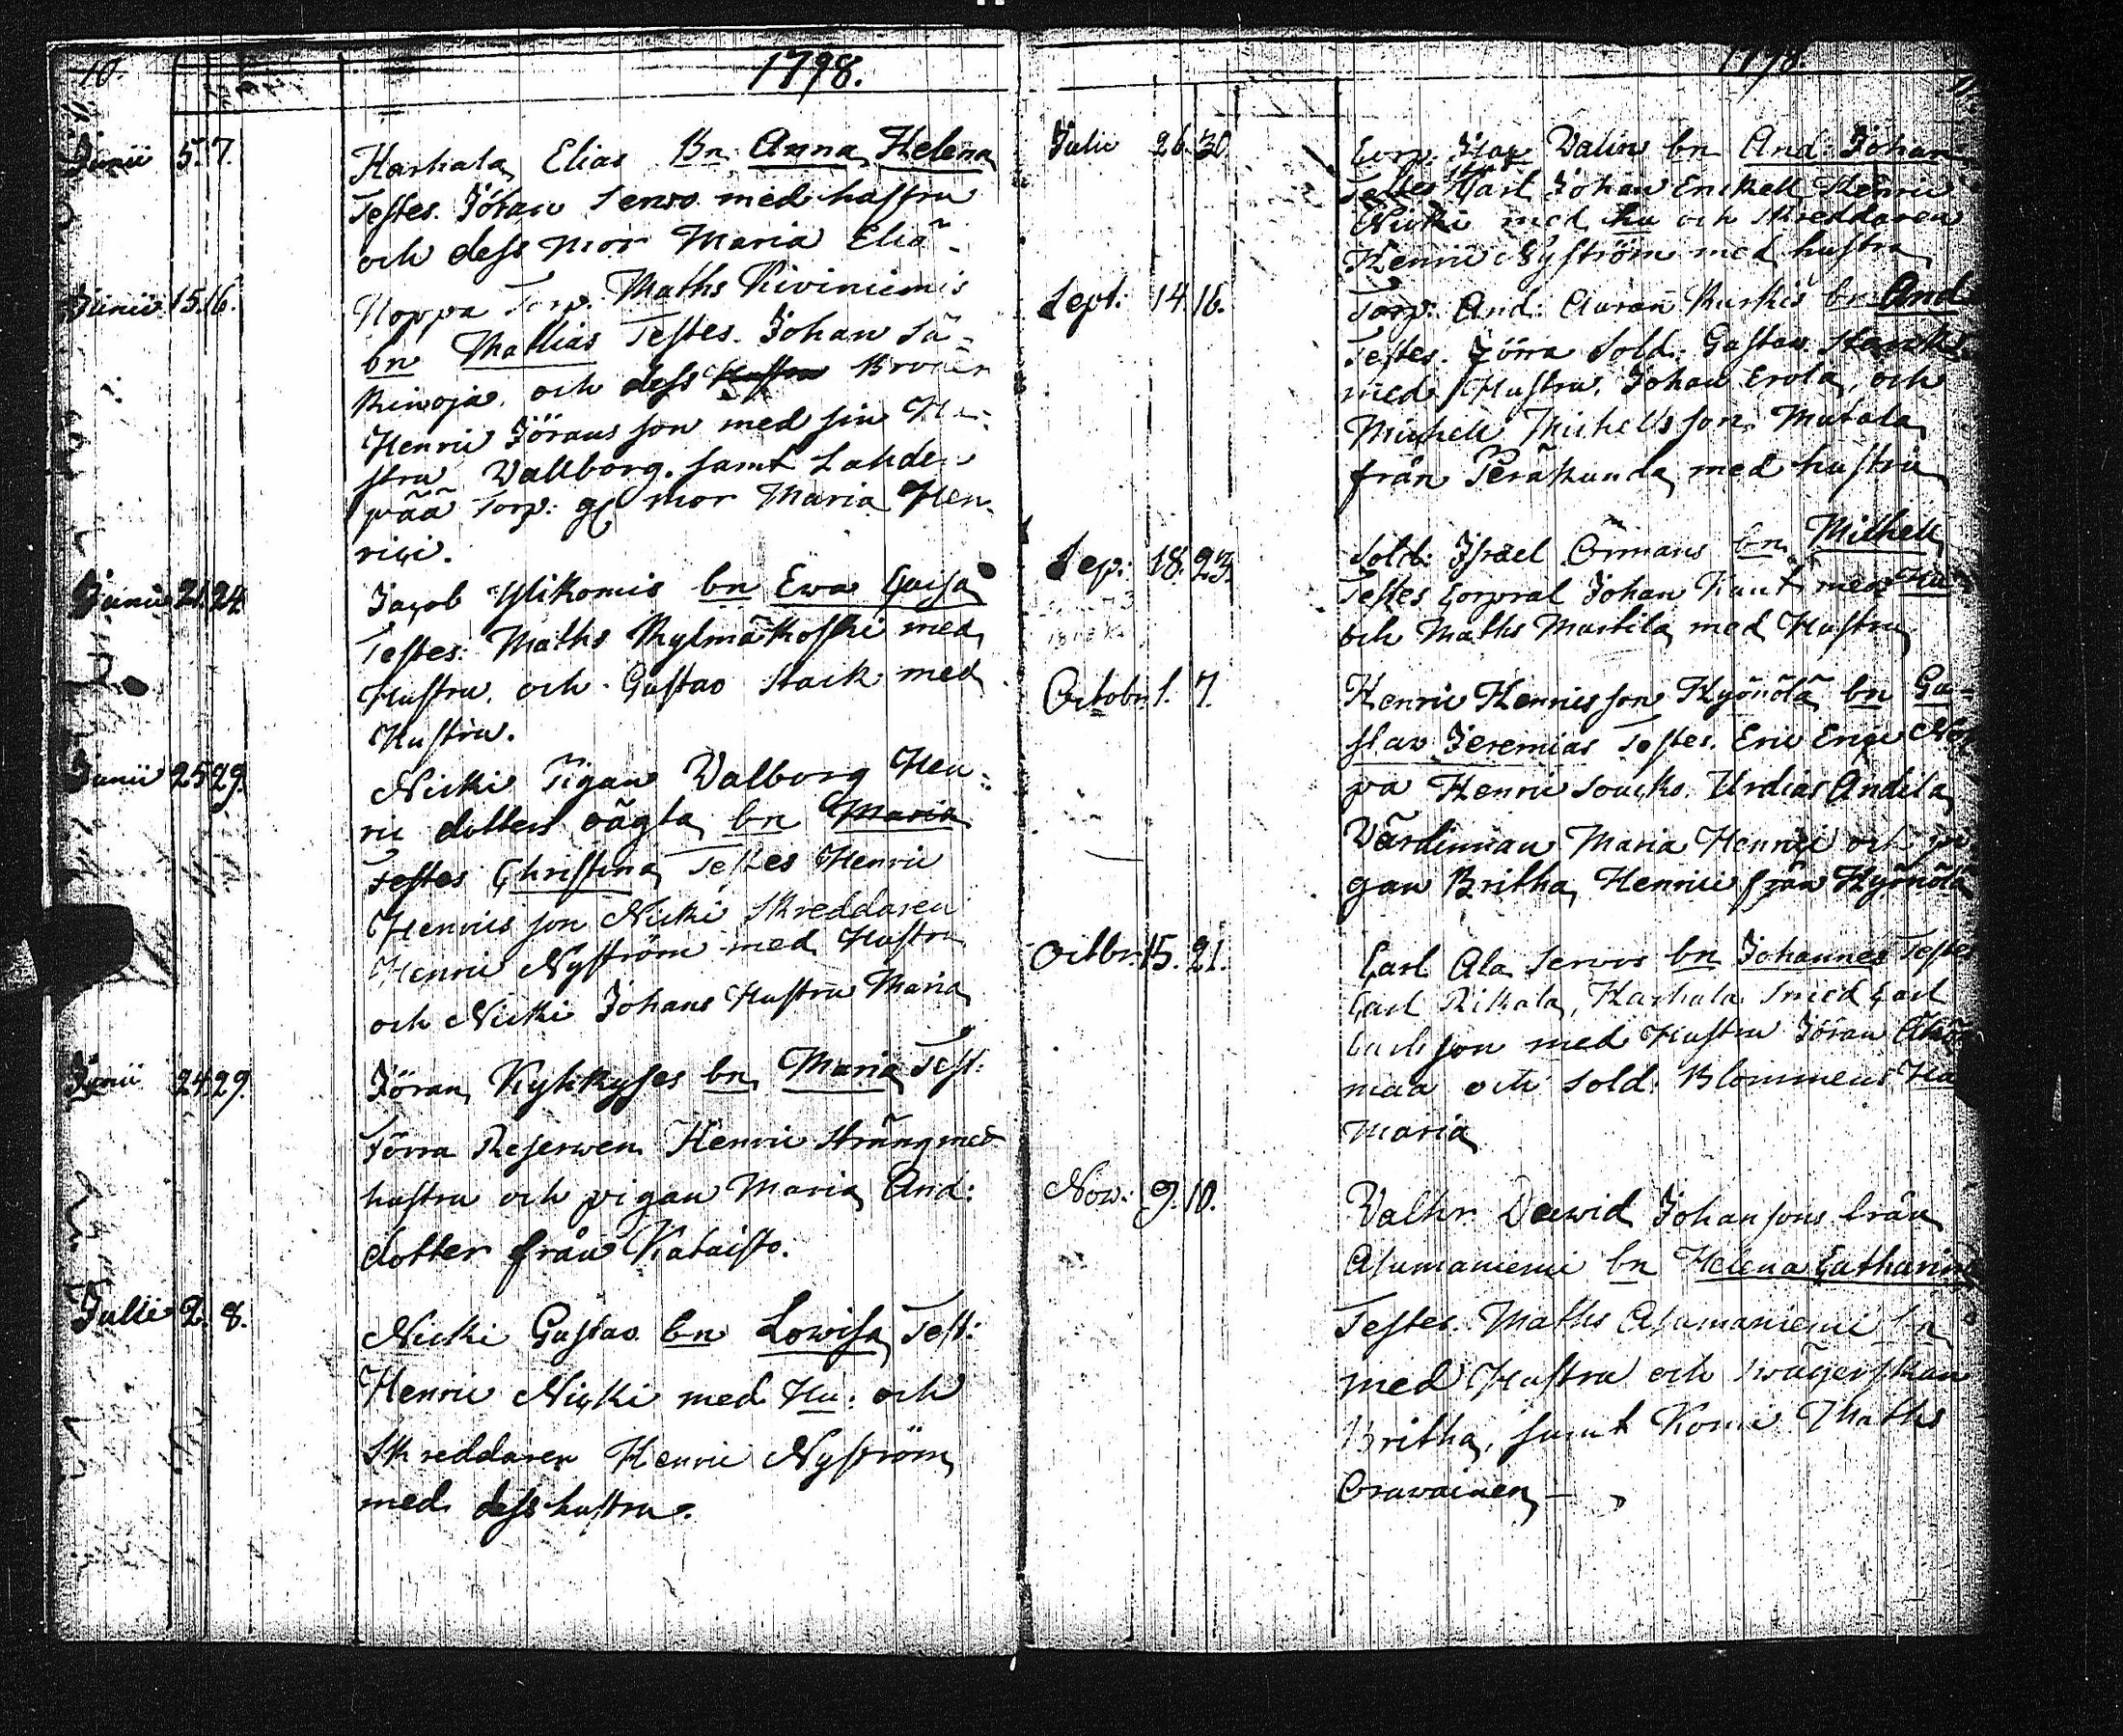 10.
1798.
Junii 5. 7. Harhala Elias Bn Anna Helena
Testes. Jöran Servo med hustru
och dess mor Maria Eliæ
Junii 15. 16. Noppa Torp. Maths Kiviniemis
bn Mathias Testes. Johan Sä-
kinoja och dess Hustru Broder
Henric Jöransson med sin Hu-
stru Vallborg. samt Lahden
pää Torp: gl mor Maria Hen-
rici.
Junii 21. 24. Jacob Ylikomis bn Ewa Caisa
Testes: Maths Kylmäkoski med
Hustru. och Gustav Stack med
Hustru.
Junii 25 29. Nicki Pigan Valborg Hen-
ric dotters oägta bn Maria
Testes Christina Testes Henric
Henricsson Nicki Skreddaren
Henric Nyström med Hustru
och Nicki Johans Hustru Maria
Junii 24 29. Jöran Kyhkyses bn Maria Test:
Förra Reserven Henric Sträng med
hustru och pigan Maria And:
dotter från Kataisto.
Julii 2. 8. Nicki Gustav bn Lowisa Test:
Henric Nicki med Hu: och
Skreddaren Henric Nyström
med dess hustru.
1798
Julii 26. 30 Corp: Isac Valin bn And: Johan
Testes Karl Johan Enckell Henric
Nicki med hu och Skreddaren
Henric Nyström med hustru
Sept: 14. 16. Torp: And: Auran Kurkis bn And
Testes. Förra Sold: Gustav Starck
med Hustru. Johan Erola, och
Michell Michellsson Mutala
från Peräkunda med hustru
Sep: 18. 23. Sold: Israel Ormans bn Michell
Testes Corporal Johan Kunt med Hu
och Maths Martila med Hustru
Octobr 1. 7. Henric Henricsson Hyönölä bn Gu-
stav Jeremias Testes. Eric Erici Nop
pa Henric Soucko. Urdias Andila
Värdinnan Maria Henrici och pi
gan Britha Henrici från Hyönölä
Octbr. 15. 21. Carl Ala Servos bn Johannes Testes
Carl Rikala, Harhala Smed Carl
Carlsson med Hustru Jöran
maa och Sold: Blommens Hu
Maria
Nov: 9. 10. Valhr Dawid Johansons från
Asumaniemi bn Helena Catharina
Testes. Maths Asumaniemi bn
med Hustru och swägerskan
Britha, samt Komi Maths
Orawainen